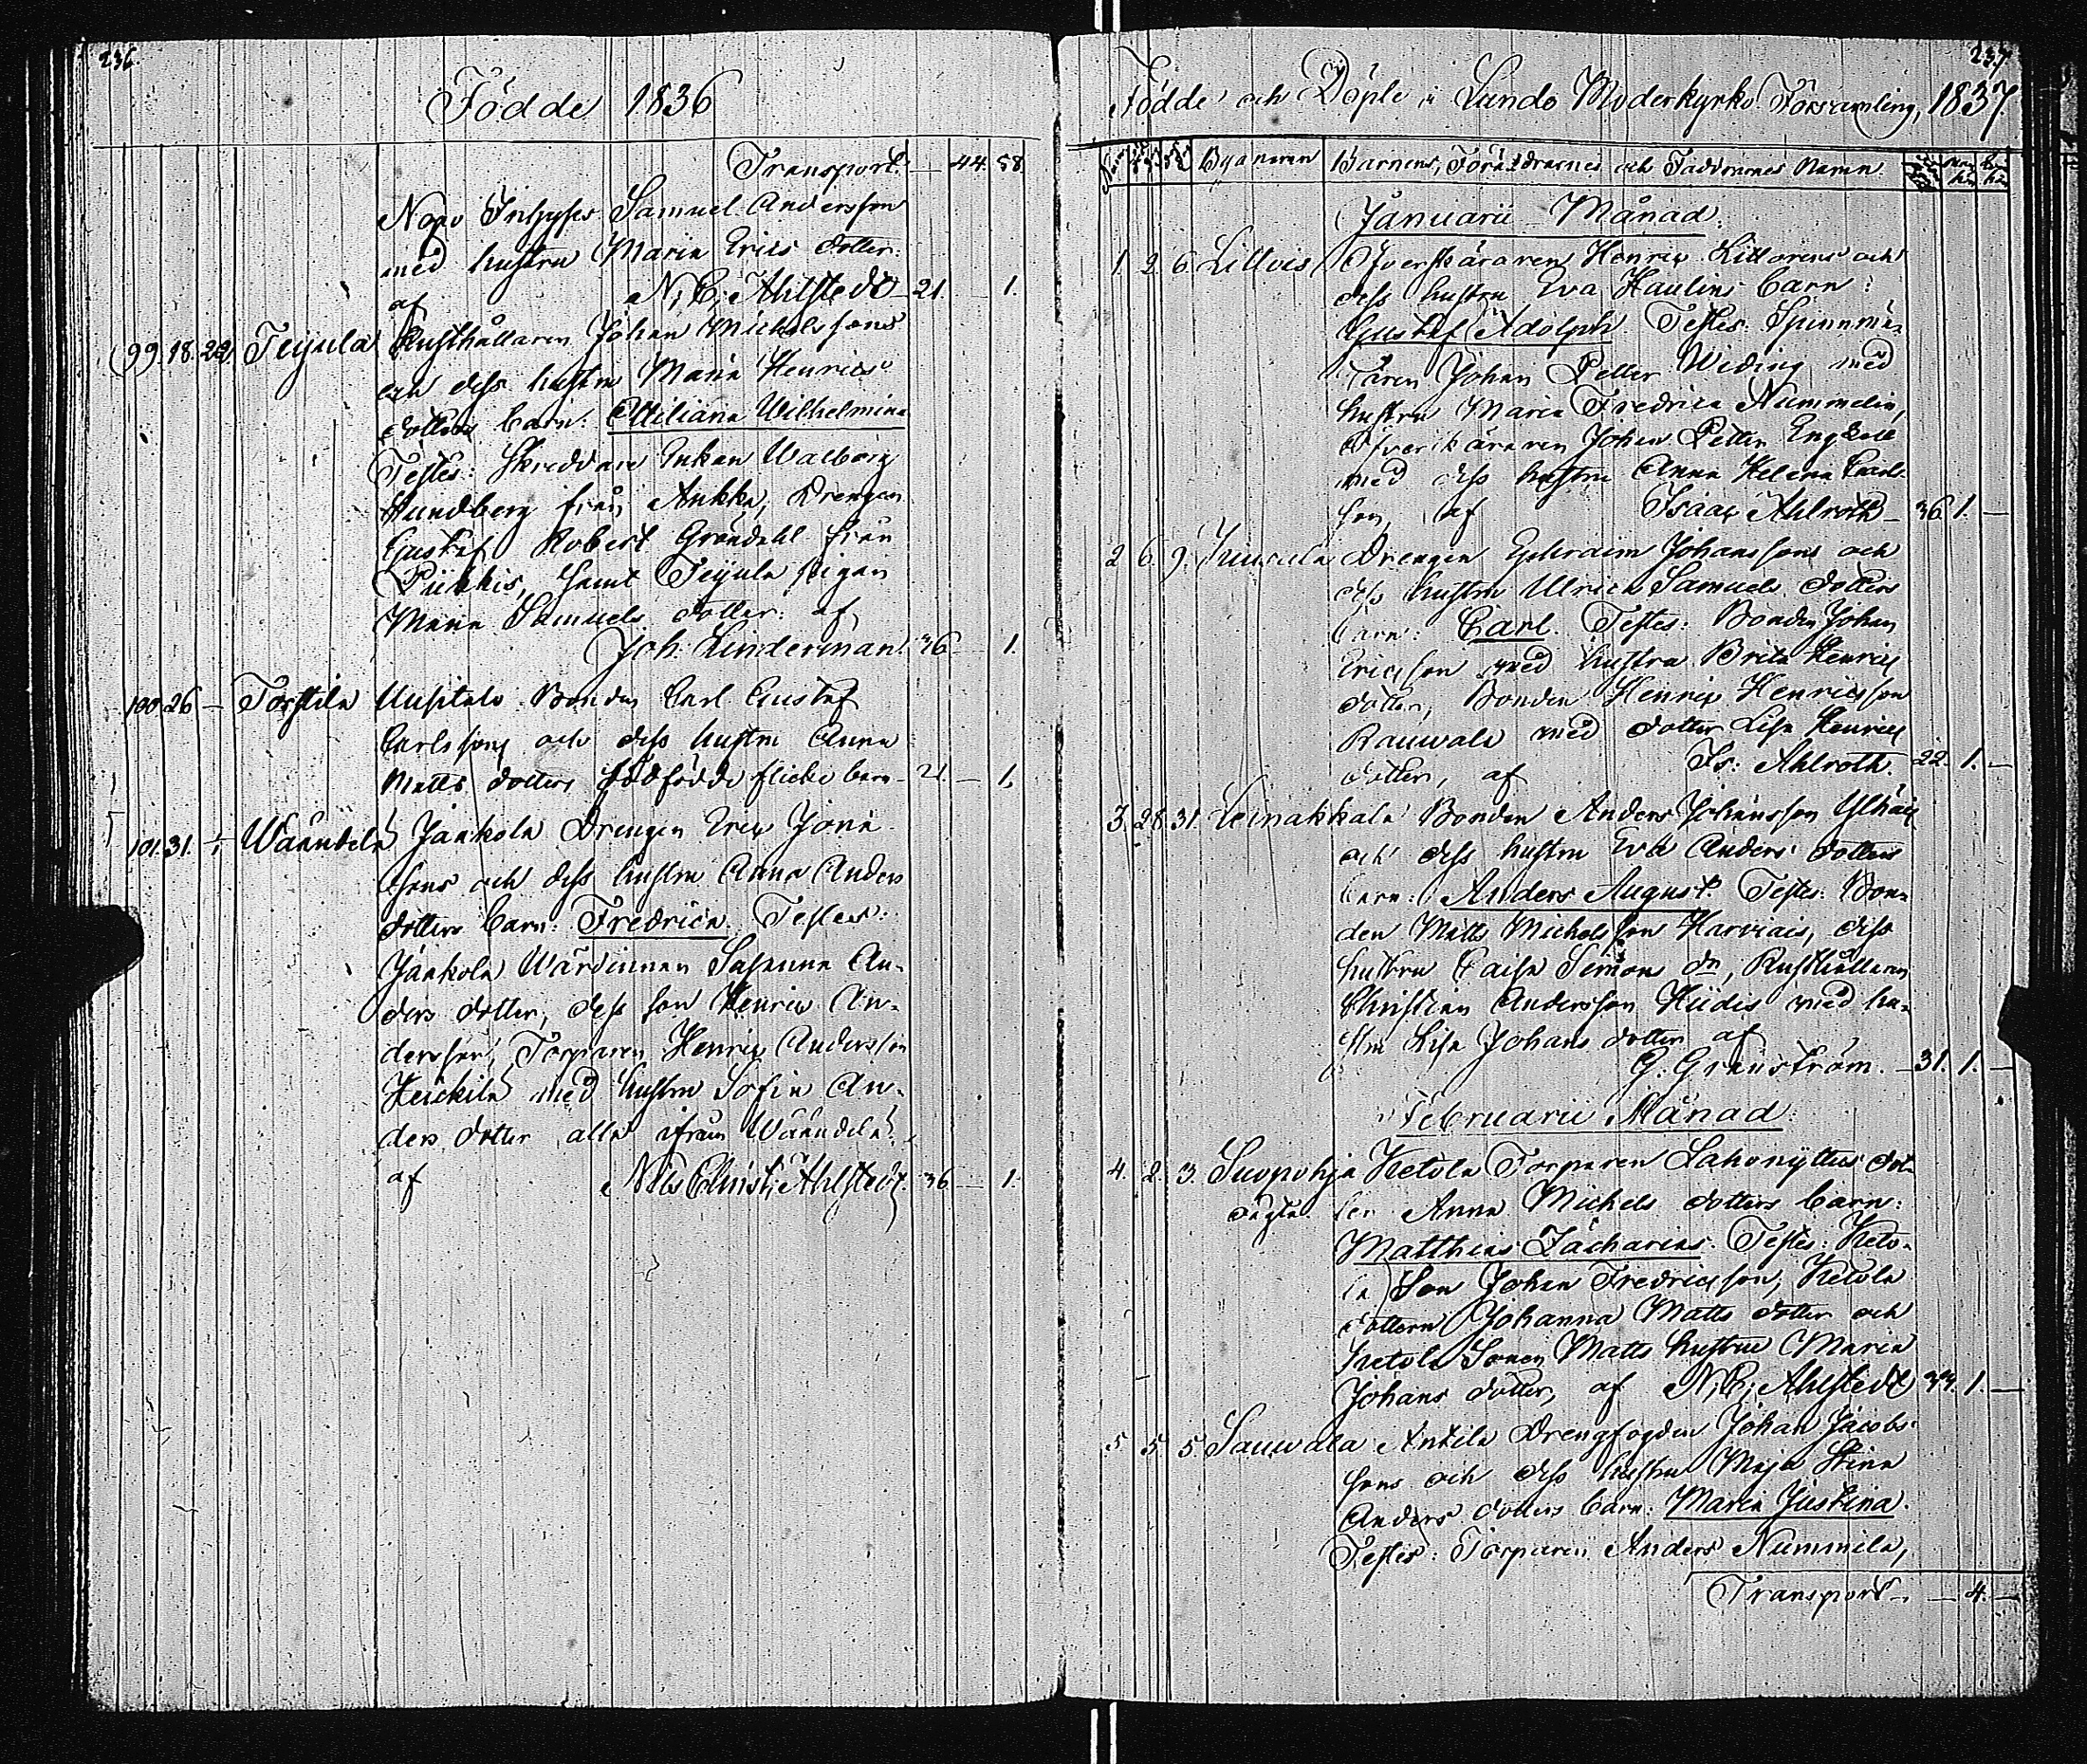 236.
Födde 1836
Transport. — 44. 58.
Inhyses Samuel Andersson
med hustru Maria Erics dotter.
af N. C. Ahlstedt 21. — 1.
99. 18. 22. Teijula Rusthållaren Johan Michelssons
och dess hustru Maria Henrics
dotters barn: Ottiliana Wilhelmina
Testes: Skreddare Enkan Walborg
Lundberg från Aukka, Drengen
Gustaf Robert Gröndahl från
Piikkis, samt Teijula pigan
Maria Samuels dotter. af
Joh: Linderman 36 — 1.
100. 26 — Torstila Uusitalo Bonden Carl Gustaf
Carlssons och dess hustru Anna
Matts dotters dödfödde flicke barn 21 — 1.
101. 31. — Wäändelä Jaakola Drengen Eric Jona
sons och dess hustru Anna Anders
dotters barn: Fredrica. Testes:
Jaakola Wärdinnan Susanna An-
ders dotter, dess son Henric An-
dersson, Torparen Henric Andersson
Heickilä med hustru Sofia An-
ders dotter alla ifrån Wäändelä.
af Nils Christ: Ahlstedt. 36 — 1.
237
Födde och Döpte i Lundo Moderkyrko Församling, 1837.
Byanamn Barnens, Föräldrarnes och Faddrarnes Namn
Januarii Månad.
1. 2. 6. Lillvis Öfverskäraren Henric Littorens och
dess hustru Eva Haulins barn:
Gustaf Adolph. Testes. Spinnmä-
taren Johan Petter Widing med
hustru Maria Fredrica Nummelin,
Öfverskäraren Johan Petter
med dess hustru Anna Helena Carls
son, af Isaac Ahlroth — 36. 1. —
2 6. 9. Drengen Ephraim Johanssons och
dess hustru Ulrica Samuels dotters
barn: Carl. Testes: Bonden Johan
Ericsson med hustru Brita Henrics
dotter, Bonden Henric Henricsson
Rauwala med dotter Lisa Henrics
dotter, af Is: Ahlroth. 22. 1. —
3. 28. 31. Leinakkala Bonden Anders Johansson
och dess hustru Eva Anders dotters
barn: Anders August. Testes: Bon-
den Matts Michelsson Harviais, dess
hustru Caisa Simons dr, Rusthållaren
Christian Andersson Hiidis med hu-
stru Lisa Johans dotter af
G. Granström. — 31. 1. —
Februarii Månad.
4. 2. 3. Suopohja Ketola Torparen Lahonyttus dot-
oägta. ter Anna Michels dotters barn:
Matthias Zacharias. Testes: Keto-
la Son Johan Fredricsson, Ketola
dottern Johanna Matts dotter och
Ketola Sonen Matts hustru Maria
Johans dotter, af N. C. Ahlstedt 33. 1. —
5 5 5. Sauwala Anttila Drengfogden Johan Jacobs
sons och dess hustru Maja Stina
Anders dotters barn: Maria Justina.
Testes: Torparen Anders Nummila,
Transport — — 4. —